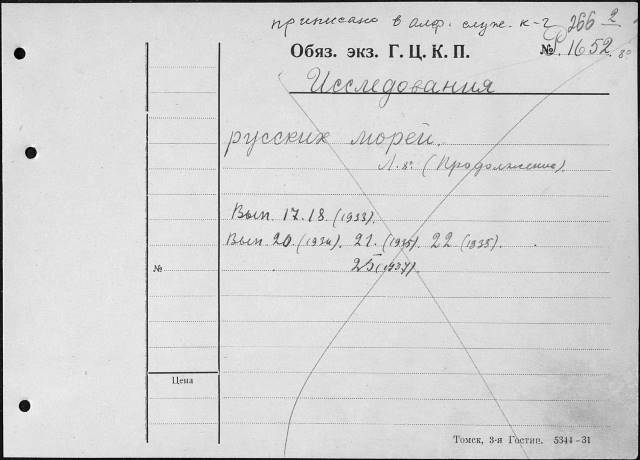 приписано в алф. служ. к-г 266 2
Обяз. экз. Г. Ц. К. П. № 1652. 8°
Исследования
русских морей.
Л. 8° (Продолжение).
Вып. 17. 18. (1933).
Вып. 20. (1934). 21. (1935). 22 (1935).
№ 25 (1937)
Цена
Томск, 3-я Гостип. 5344–31